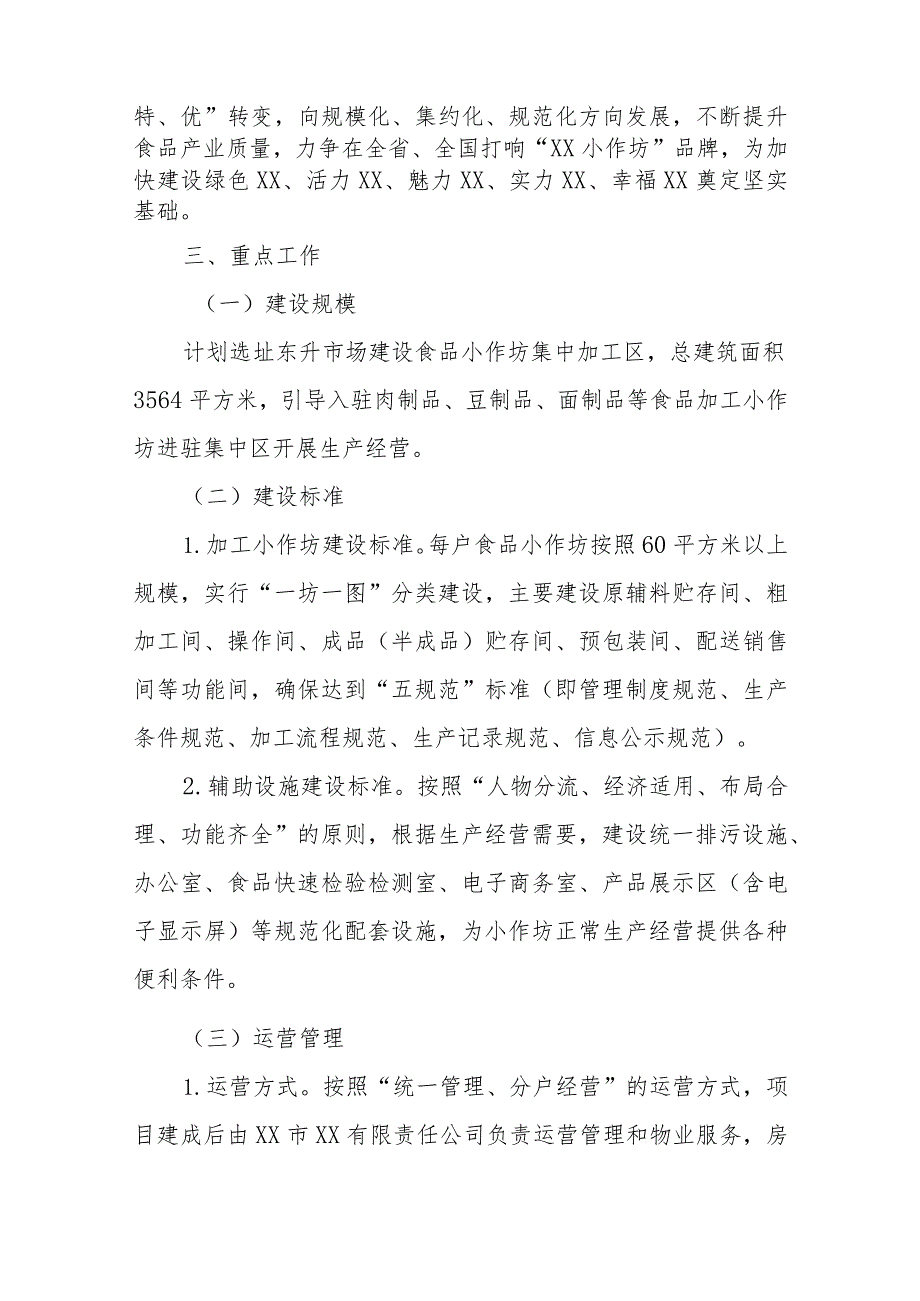 特、优”转变，向规模化、集约化、规范化方向发展，不断提升
食品产业质量，力争在全省、全国打响“XX小作坊”品牌，为加
快建设绿色XX、活力XX、魅力XX、实力XX、幸福XX奠定坚实
基础。
三、重点工作
（一）建设规模
计划选址东升市场建设食品小作坊集中加工区，总建筑面积
3564平方米，引导入驻肉制品、豆制品、面制品等食品加工小作
坊进驻集中区开展生产经营。
（二）建设标准
1.加工小作坊建设标准。每户食品小作坊按照60平方米以上
规模，实行“一坊一图”分类建设，主要建设原辅料贮存间、粗
加工间、操作间、成品（半成品）贮存间、预包装间、配送销售
间等功能间，确保达到“五规范”标准（即管理制度规范、生产
条件规范、加工流程规范、生产记录规范、信息公示规范）。
2.辅助设施建设标准。按照“人物分流、经济适用、布局合
理、功能齐全”的原则，根据生产经营需要，建设统一排污设施、
办公室、食品快速检验检测室、电子商务室、产品展示区（含电
子显示屏）等规范化配套设施，为小作坊正常生产经营提供各种
便利条件。
（三）运营管理
1.运营方式。按照“统一管理、分户经营”的运营方式，项
目建成后由XX市XX有限责任公司负责运营管理和物业服务，房